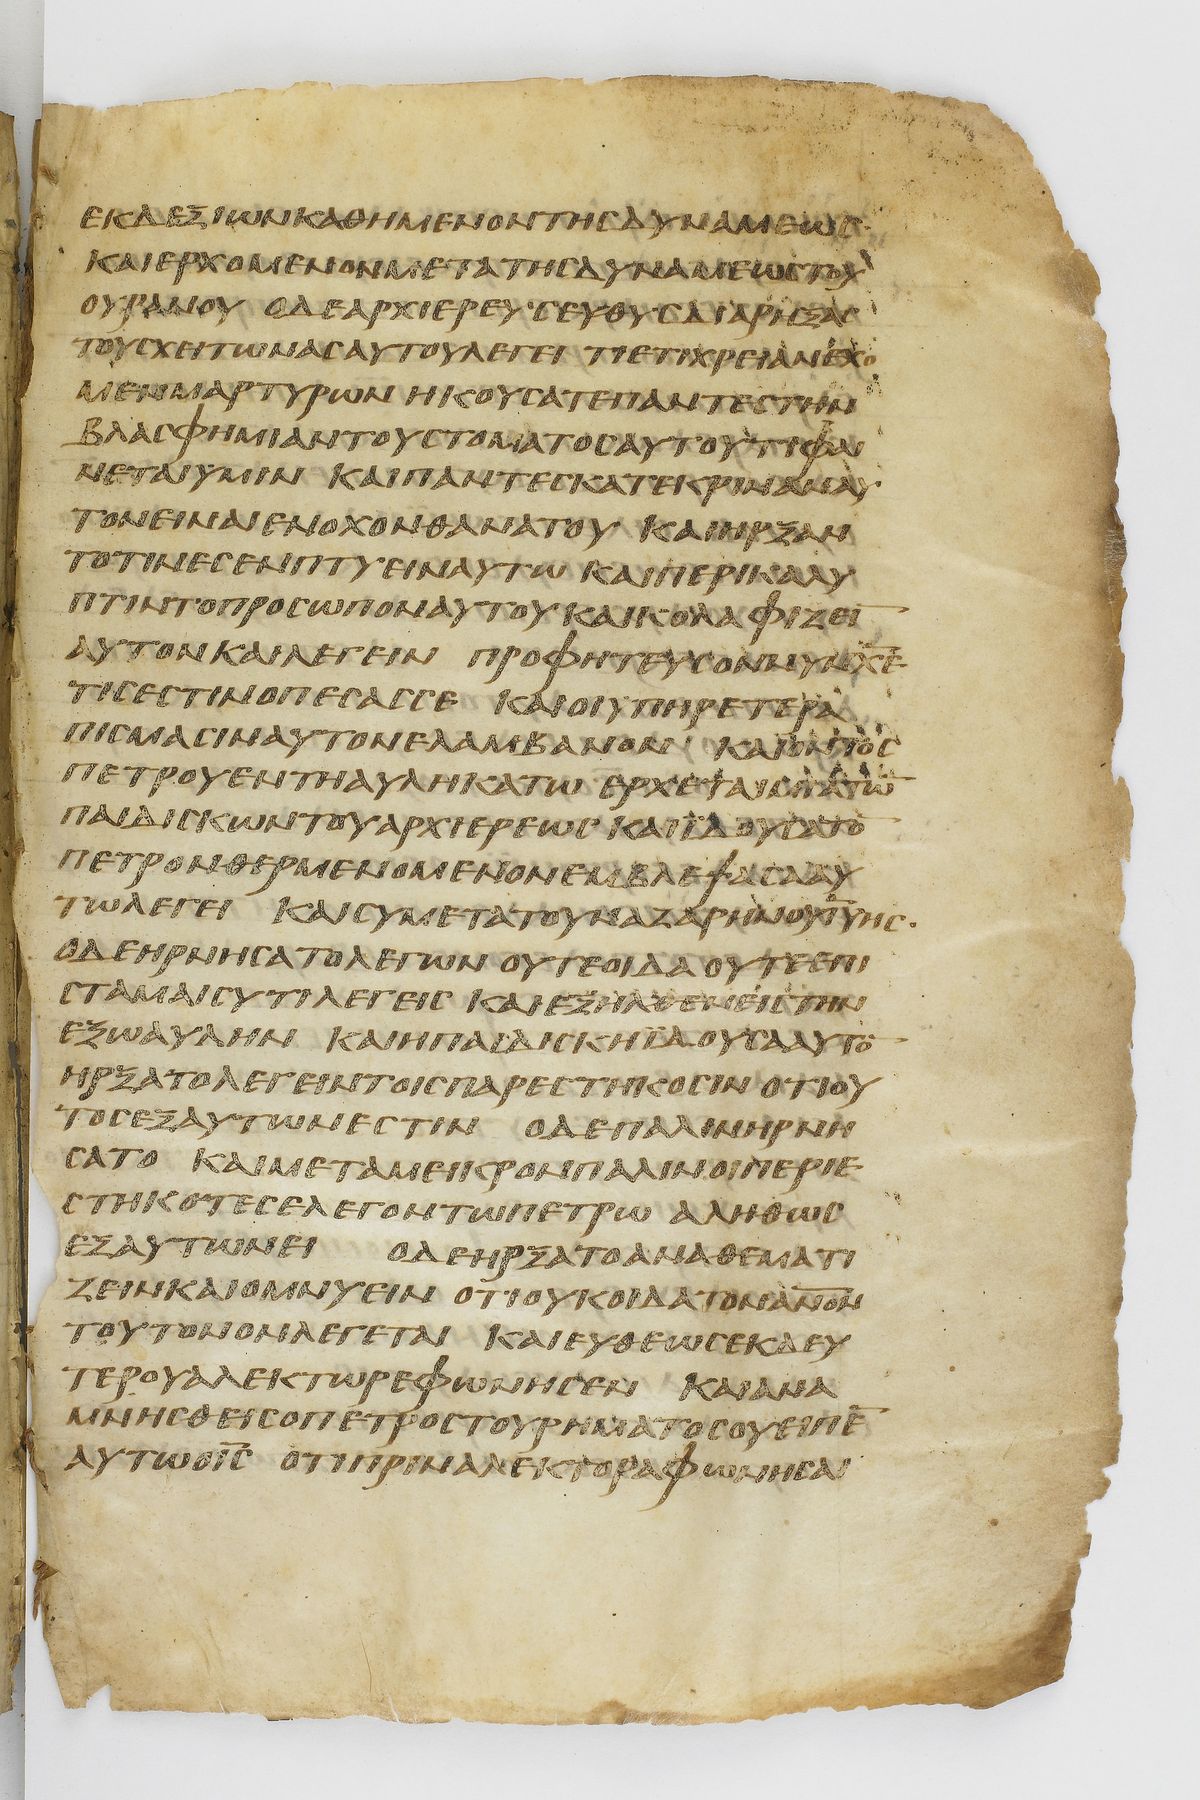 ΕΚΔΕΞΙΩΝΚΑΘΗΜΕΝΟΝΤΗΣΔΥΝΑΜΕΩΣ·
ΚΑΙΕΡΧΟΜΕΝΟΝΜΕΤΑΤΗΣΔΥΝΑΜΕΩΣΤΟΥ
ΟΥΡΑΝΟΥ ΟΔΕΑΡΧΙΕΡΕΥΣΕΥΘΥΣΔΙΑΡΗΞΑΣ
ΤΟΥΣΧΕΙΤΩΝΑΣΑΥΤΟΥΛΕΓΕΙ ΤΙΕΤΙΧΡΕΙΑΝΕΧΟ
ΜΕΝΜΑΡΤΥΡΩΝ ΗΚΟΥΣΑΤΕΠΑΝΤΕΣΤΗΝ
ΒΛΑΣΦΗΜΙΑΝΤΟΥΣΤΟΜΑΤΟΣΑΥΤΟΥΤΙΦΑΙ
ΝΕΤΑΙΥΜΙΝ ΚΑΙΠΑΝΤΕΣΚΑΤΕΚΡΙΝΑΝΑΥ
ΤΟΝΕΙΝΑΙΕΝΟΧΟΝΘΑΝΑΤΟΥ ΚΑΙΗΡΞΑΝ
ΤΟΤΙΝΕΣΕΝΠΤΥΕΙΝΑΥΤΩ ΚΑΙΠΕΡΙΚΑΛΥ
ΠΤΙΝΤΟΠΡΟΣΩΠΟΝΑΥΤΟΥ ΚΑΙΚΟΛΑΦΙΖΕΙ̅
ΑΥΤΟΝΚΑΙΛΕΓΕΙΝ ΠΡΟΦΗΤΕΥΣΟΝΗΜΙΝΧ̅Ε̅
ΤΙΣΕΣΤΙΝΟΠΕΣΑΣΣΕ ΚΑΙΟΙΥΠΗΡΕΤΕΡΑ
ΠΙΣΜΑΣΙΝΑΥΤΟΝΕΛΑΜΒΑΝΟΝ ΚΑΙΟΝΤΟΣ
ΠΕΤΡΟΥΕΝΤΗΑΥΛΗΚΑΤΩ ΕΡΧΕΤΑΙΜΙΑΤΩ̅
ΠΑΙΔΙΣΚΩΝΤΟΥΑΡΧΙΕΡΕΩΣ ΚΑΙΪΔΟΥΣΑΤΟ̅
ΠΕΤΡΟΝΘΕΡΜΕΝΟΜΕΝΟΝΕΜΒΛΕΨΑΣΑΑΥ
ΤΩΛΕΓΕΙ ΚΑΙΣΥΜΕΤΑΤΟΥΝΑΖΑΡΗΝΟΥΙ̅Υ̅ΗΣ·
ΟΔΕΗΡΝΗΣΑΤΟΛΕΓΩΝ ΟΥΤΕΟΙΔΑΟΥΤΕΕΠΙ
ΣΤΑΜΑΙΣΥΤΙΛΕΓΕΙΣ ΚΑΙΕΞΗΛΘΕΝΕΙΣΤΗΝ
ΕΞΩΑΥΛΗΝ ΚΑΙΗΠΑΙΔΙΣΚΗΪΔΟΥΣΑΑΥΤΟ̅
ΗΡΞΑΤΟΛΕΓΕΙΝΤΟΙΣΠΑΡΕΣΤΗΚΟΣΙΝ ΟΤΙΟΥ
ΤΟΣΕΞΑΥΤΩΝΕΣΤΙΝ ΟΔΕΠΑΛΙΝΗΡΝΗ
ΣΑΤΟ ΚΑΙΜΕΤΑΜΕΙΚΡΟΝΠΑΛΙΝΟΙΠΕΡΙΕ
ΣΤΗΚΟΤΕΣΕΛΕΓΟΝΤΩΠΕΤΡΩ ΑΛΗΘΩΣ
ΕΞΑΥΤΩΝΕΙ ΟΔΕΗΡΞΑΤΟΑΝΑΘΕΜΑΤΙ
ΖΕΙΝΚΑΙΟΜΝΥΕΙΝ ΟΤΙΟΥΚΟΙΔΑΤΟΝΑ̅Ν̅Ο̅Ν̅
ΤΟΥΤΟΝΟΝΛΕΓΕΤΑΙ ΚΑΙΕΥΘΕΩΣΕΚΔΕΥ
ΤΕΡΟΥΑΛΕΚΤΩΡΕΦΩΝΗΣΕΝ ΚΑΙΑΝΑ
ΜΝΗΣΘΕΙΣΟΠΕΤΡΟΣΤΟΥΡΗΜΑΤΟΣΟΥΕΙΠΕ̅
ΑΥΤΩΟΙ̅Σ̅ ΟΤΙΠΡΙΝΑΛΕΚΤΟΡΑΦΩΝΗΣΑΙ